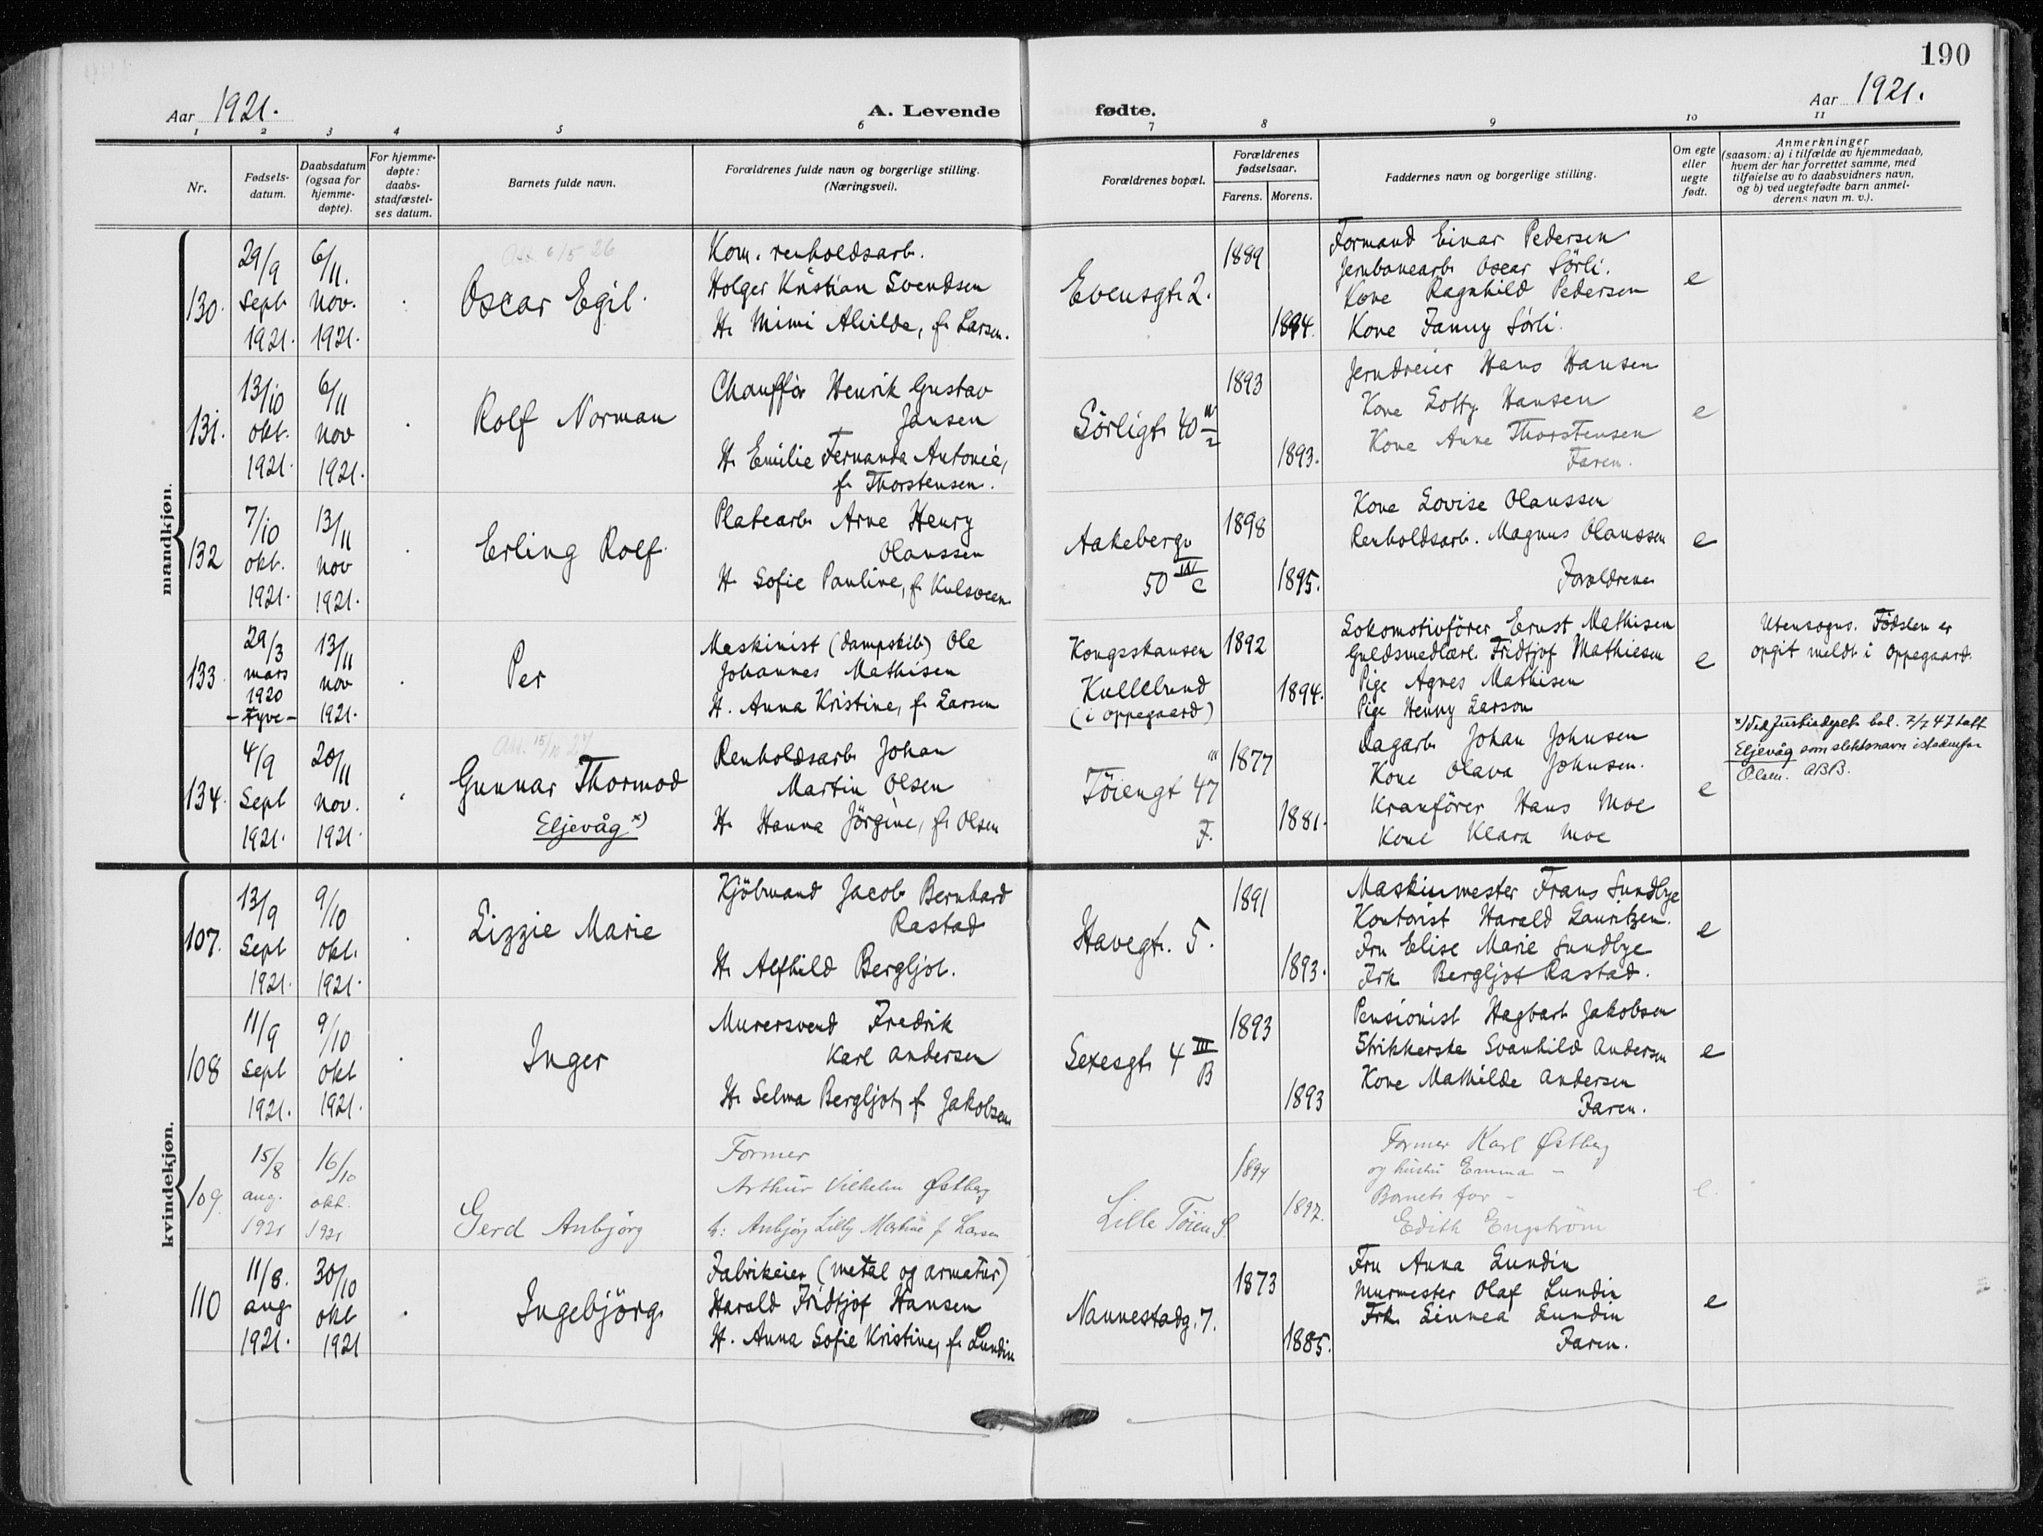 190
Aar 1921.
A. Levende fødte.
Aar 1921.
1 2 3 4 5 6 7 8 9 10 11
Nr.
Fødsels-
datum.
Daabsdatum
(ogsaa for
hjemme-
døpte).
For hjemme-
døpte:
daabs-
stadfæstel-
ses datum.
Barnets fulde navn.
Forældrenes fulde navn og borgerlige stilling.
(Næringsvei).
Forældrenes bopæl.
Forældrenes
fødselsaar.
Farens. Morens.
Faddernes navn og borgerlige stilling.
Om egte
eller
uegte
født.
Anmerkninger
(saasom: a) i tilfælde av hjemmedaab,
hvem der har forrettet samme, med
tilføielse av to daabsvidners navn,
og b) ved uegtefødte barn anmel-
derens navn m. v.).
mandkjøn.
130.
29/9
Sept
1921.
6/11.
Nov.
1921.
6/5 26
Oscar Egil.
Kom. renholdsarb.
Holger Kristian Svendsen
H. Mimi Alvilde, f. Larsen.
Evensgt. 2.
1889
1894.
Formand Einar Pedersen
Jernbanearb. Oscar Sörli.
Kone Ragnhild Pedersen
Kone Fanny Sörli.
e
131.
13/10
okt.
1921.
6/11
nov
1921.
Rolf Norman
Chauffør Henrik Gustav
Jansen
H. Emilie Fernanda Antonie,
f. Thorstensen.
Sörligt. 40
1893
1893.
Jerndreier Hans Hansen
Kone Lotty Hansen
Kone Anne Thorstensen
Faren.
e
132
7/10
okt.
1921.
13/11
nov
1921.
Erling Rolf.
Platearb. Arne Henry
Olaussen
H. Sofie Pauline, f. Kulsveen
Aakebergv
50 IV C
1898
1895.
Kone Lovise Olaussen
Renholdsarb. Magnus Olaussen
Forældrene
e
133
29/3
mars
1920
- Tyve -
13/11
nov
1921.
Per
Maskinist (dampskib) Ole
Johannes Mathisen
H. Anna Kristine, f. Larsen
Kongsskansen
Kullebund
(i Oppegaard)
1892
1894.
Lokomotivfører Ernst Mathisen
Guldsmedlærl. Fridtjof Mathiesen
Pige Agnes Mathisen
Pige Henny Larson
e
Utensogns. Fødslen er
opgit meldt i Oppegaard.
134.
4/9
Sept
1921.
20/11
nov.
1921.
15/10 27
Gunnar Thormod
Eljevåg x)
Renholdsarb. Johan
Martin Olsen
H. Hanna Jörgine, f. Olsen
Töiengt 47 III
F.
1877
1881.
Lagarb. Johan Johnsen
Kone Olava Johnsen.
Kranfører Hans Moe
Kone Klara Moe
e
x) Ved Justisdept. bel. 7/7 47 tatt
Eljevåg som slektsnavn istedenfor
Olsen. ABB.
kvindekjøn.
107.
13/9
Sept
1921.
9/10
okt.
1921.
Lizzie Marie
Kjöbmand Jacob Bernhard
Rastad
H. Alfhild Bergljot.
Havegt. 5.
1891
1893.
Maskinmester Frans Sundbye
Kontorist Harald Lauritzen.
Fru Elise Marie Sundbye
Frk Bergljot Rastad.
e
108
11/9
Sept
1921.
9/10
okt
1921.
Inger
Murersvend Fredrik
Karl Andersen
H. Selma Bergljot, f. Jakobsen
Sexesgt. 4 III
B
1893
1893
Pensionist Hagbart Jakobsen
Strikkerske Svanhild Andersen
Kone Mathilde Andersen
Faren.
e
109.
15/8
aug.
1921
16/10
okt.
1921
Gerd Anbjörg
Former
Arthur Vilhelm Østberg
h: Anbjörg Lilly Martine f Larsen
Lille Töien
1894
1897.
Former Karl Østberg
og hustru Emma -
Barnets far -
Edith Engström
e.
110
11/8.
aug
1921.
30/10
okt
1921
Ingebjörg
Fabrikeier (metal og armatur)
Harald Fridtjof Hansen
H. Anna Sofie Kristine, f. Lundin
Nannestadg. 7.
1873
1885.
Fru Anna Lundin
Murmester Olaf Lundin
Frk. Linnea Lundin
Faren.
e